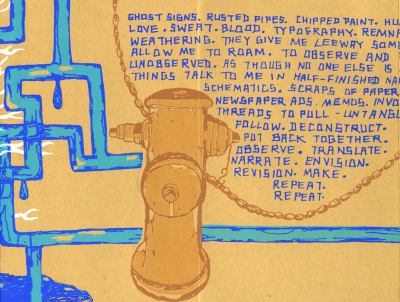 GHOST SIGNS. RUSTED PIPES. CHIPPED PAINT.
LOVE. SWEAT. BLOOD. TYPOGRAPHY.
WEATHERING. THEY GIVE ME LEEWAY
ALLOW ME TO ROAM. TO OBSERVE AND
UNOBSERVED. AS THOUGH NO ONE ELSE IS
THINGS TALK TO ME IN HALF-FINISHED
SCHEMATICS. SCRAPS OF PAPER
NEWSPAPER ADS. MEMOS.
THREADS TO PULL - UNTANGLE
FOLLOW. DECONSTRUCT.
PUT BACK TOGETHER.
OBSERVE. TRANSLATE.
NARRATE. ENVISION.
REVISION. MAKE.
REPEAT.
REPEAT.